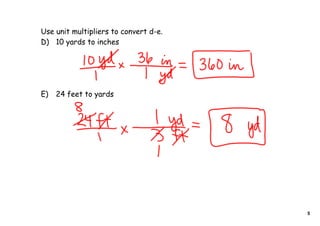 Use unit multipliers to convert d-e.
D) 10 yards to inches
10 yd/1 x 36 in/1 yd = 360 in
E) 24 feet to yards
8
24 ft/1 x 1 yd/3 ft = 8 yd
1
8